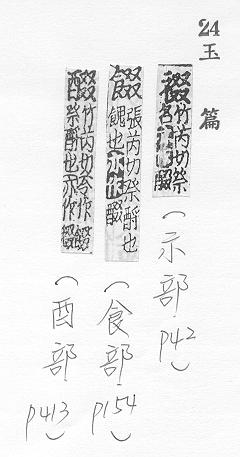 24 玉篇
䄌竹芮切祭
（示部 p42）
餟張芮切祭酹也
餽也亦作醊
（食部 p154）
醊竹芮切今作餟
祭酹也亦作䄌
（酉部 p413）